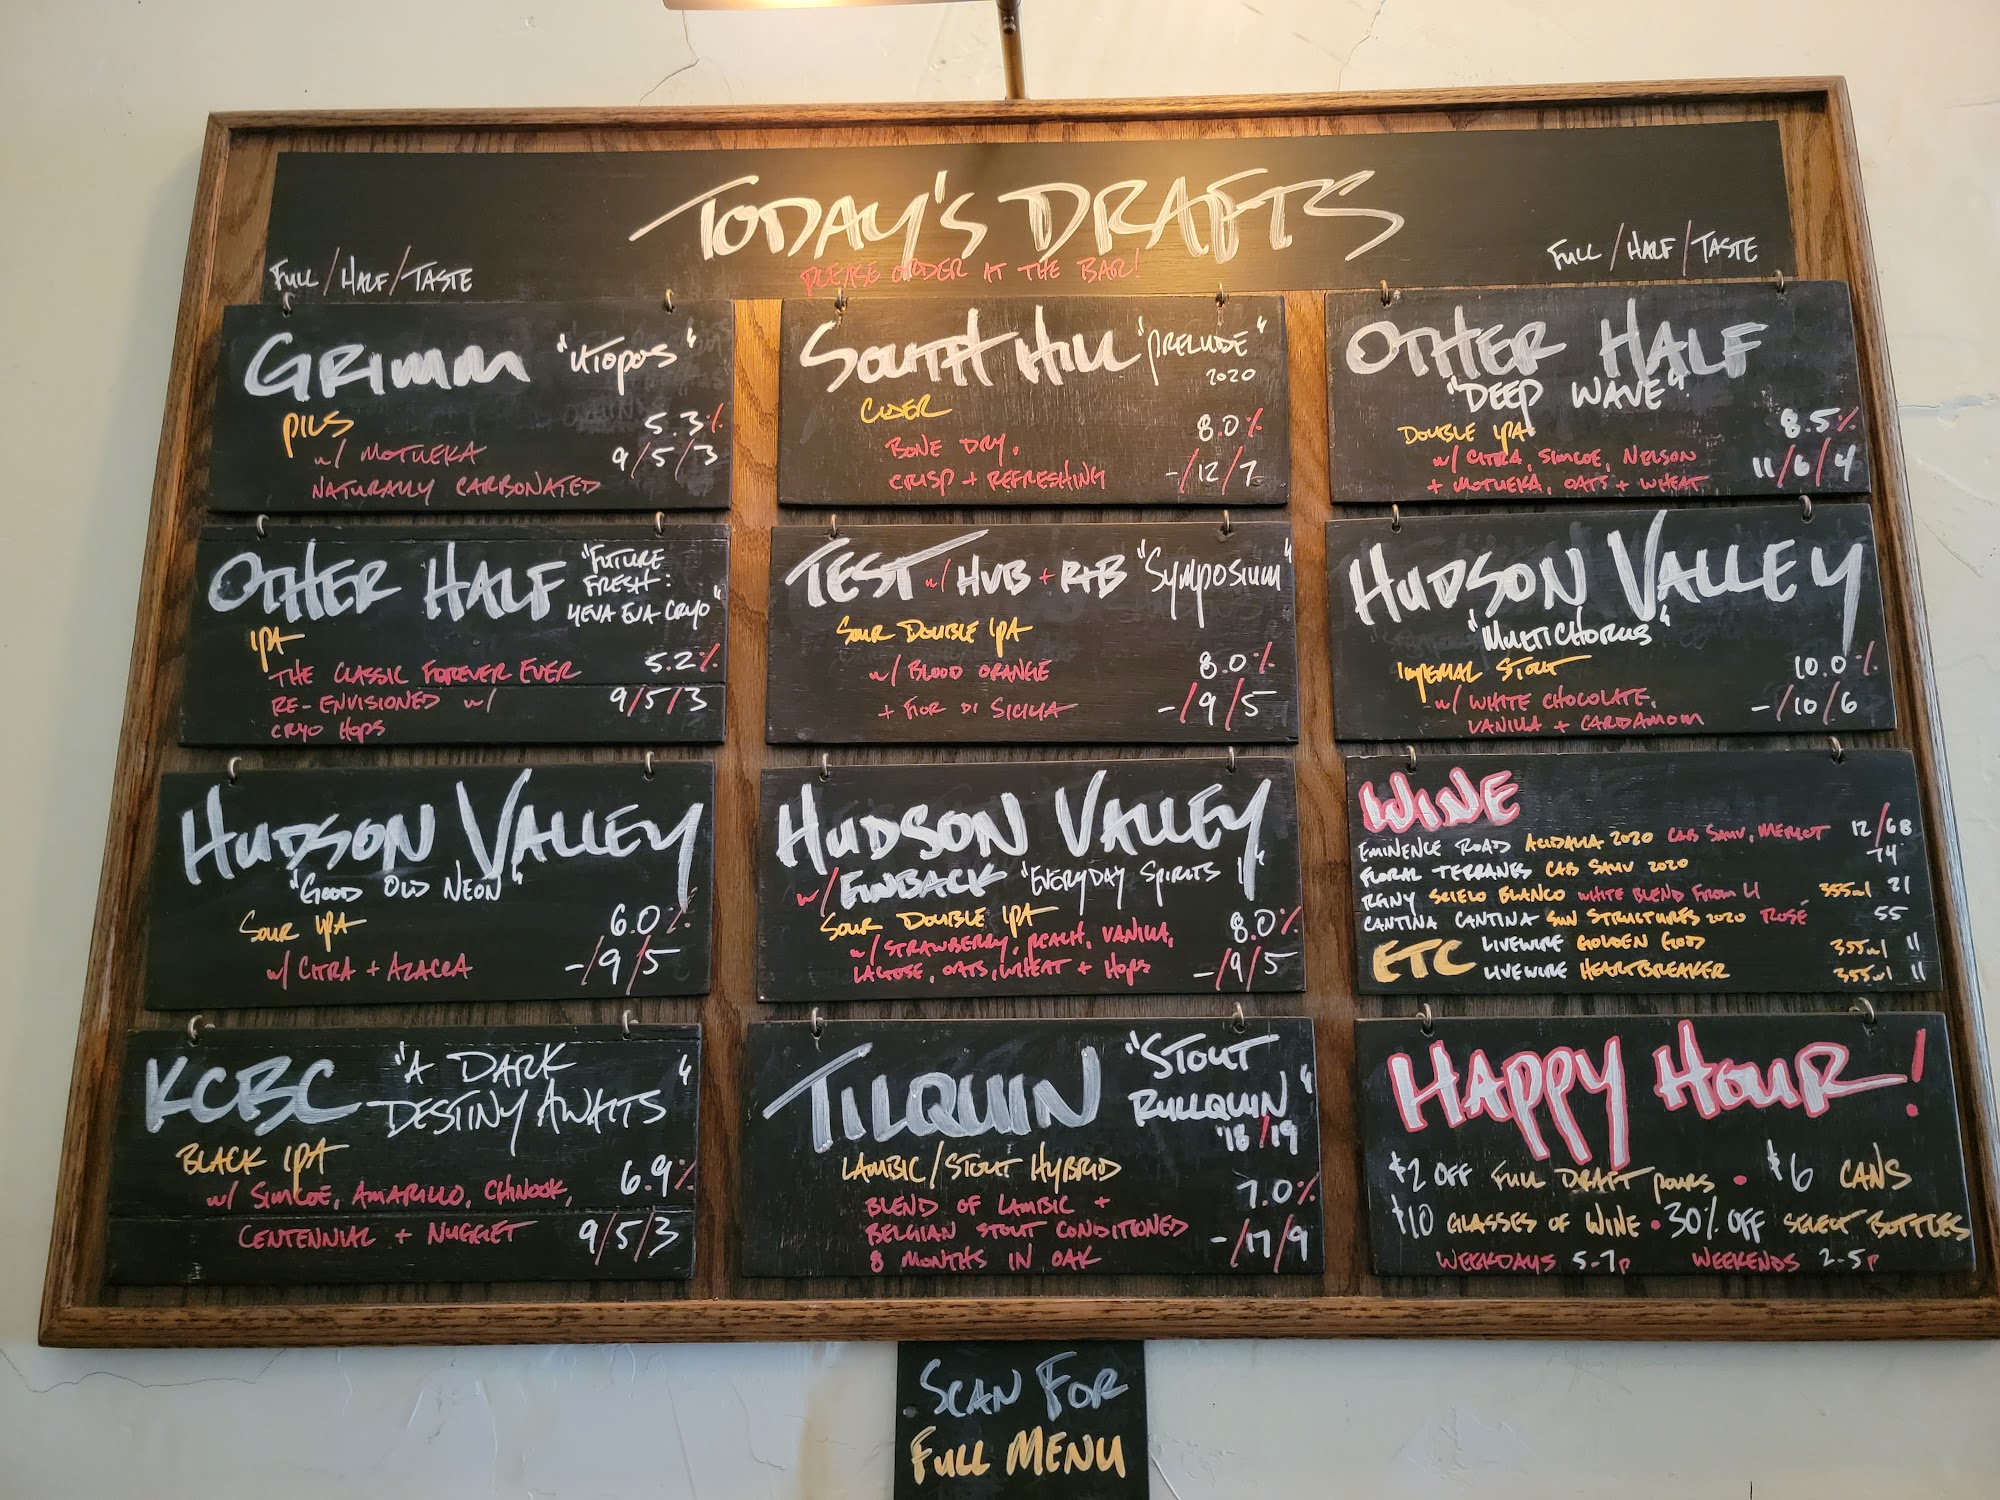 TODAY'S DRAFTS
FULL/HALF/TASTE
PLEASE ORDER AT THE BAR!
FULL/HALF/TASTE
GRIMM "UTOPOS"
PILS 5.3%
w/ MOTUEKA 9/5/3
NATURALLY CARBONATED
OTHER HALF "FUTURE
FRESH:
4EVA EVA CRYO"
IPA
THE CLASSIC FOREVER EVER 5.2%
RE-ENVISIONED w/ 9/5/3
CRYO HOPS
HUDSON VALLEY
"GOOD OLD NEON"
SOUR IPA 6.0%
w/ CITRA + AZACCA -/9/5
KCBC "A DARK
DESTINY AWAITS"
BLACK IPA 6.9%
w/ SIMCOE, AMARILLO, CHINOOK,
CENTENNIAL + NUGGET 9/5/3
SOUTH HILL "PRELUDE"
2020
CIDER 8.0%
BONE DRY,
CRISP + REFRESHING -/12/7
TEST w/ HVB + R+B "SYMPOSIUM"
SOUR DOUBLE IPA
w/ BLOOD ORANGE 8.0%
+ FIOR DI SICILIA -/9/5
HUDSON VALLEY
w/ FINBACK "EVERYDAY SPIRITS II"
SOUR DOUBLE IPA 8.0%
w/ STRAWBERRY, PEACH, VANILLA,
LACTOSE, OATS, WHEAT + HOPS -/9/5
TILQUIN "STOUT
RULLQUIN"
'18/19
LAMBIC/STOUT HYBRID
BLEND OF LAMBIC + 7.0%
BELGIAN STOUT CONDITIONED
8 MONTHS IN OAK -/17/9
OTHER HALF
"DEEP WAVE"
DOUBLE IPA 8.5%
w/ CITRA, SIMCOE, NELSON
+ MOTUEKA, OATS + WHEAT 11/6/4
HUDSON VALLEY
"MULTICHORUS"
IMPERIAL STOUT 10.0%
w/ WHITE CHOCOLATE,
VANILLA + CARDAMOM -/10/6
WINE
EMINENCE ROAD 2020 CAB SAUV, MERLOT 12/68
FLORAL TERRANES CAB SAUV 2020 74
REINY SCIELO BLANCO WHITE BLEND FROM LI 355ml 21
CANTINA CANTINA SUN STRUCTURES 2020 ROSÉ 55
ETC LIVEWIRE GOLDEN GOD 355ml 11
LIVEWIRE HEARTBREAKER 355ml 11
HAPPY HOUR!
$2 OFF FULL DRAFT POURS • $6 CANS
$10 GLASSES OF WINE • 30% OFF SELECT BOTTLES
WEEKDAYS 5-7P WEEKENDS 2-5P
SCAN FOR
FULL MENU